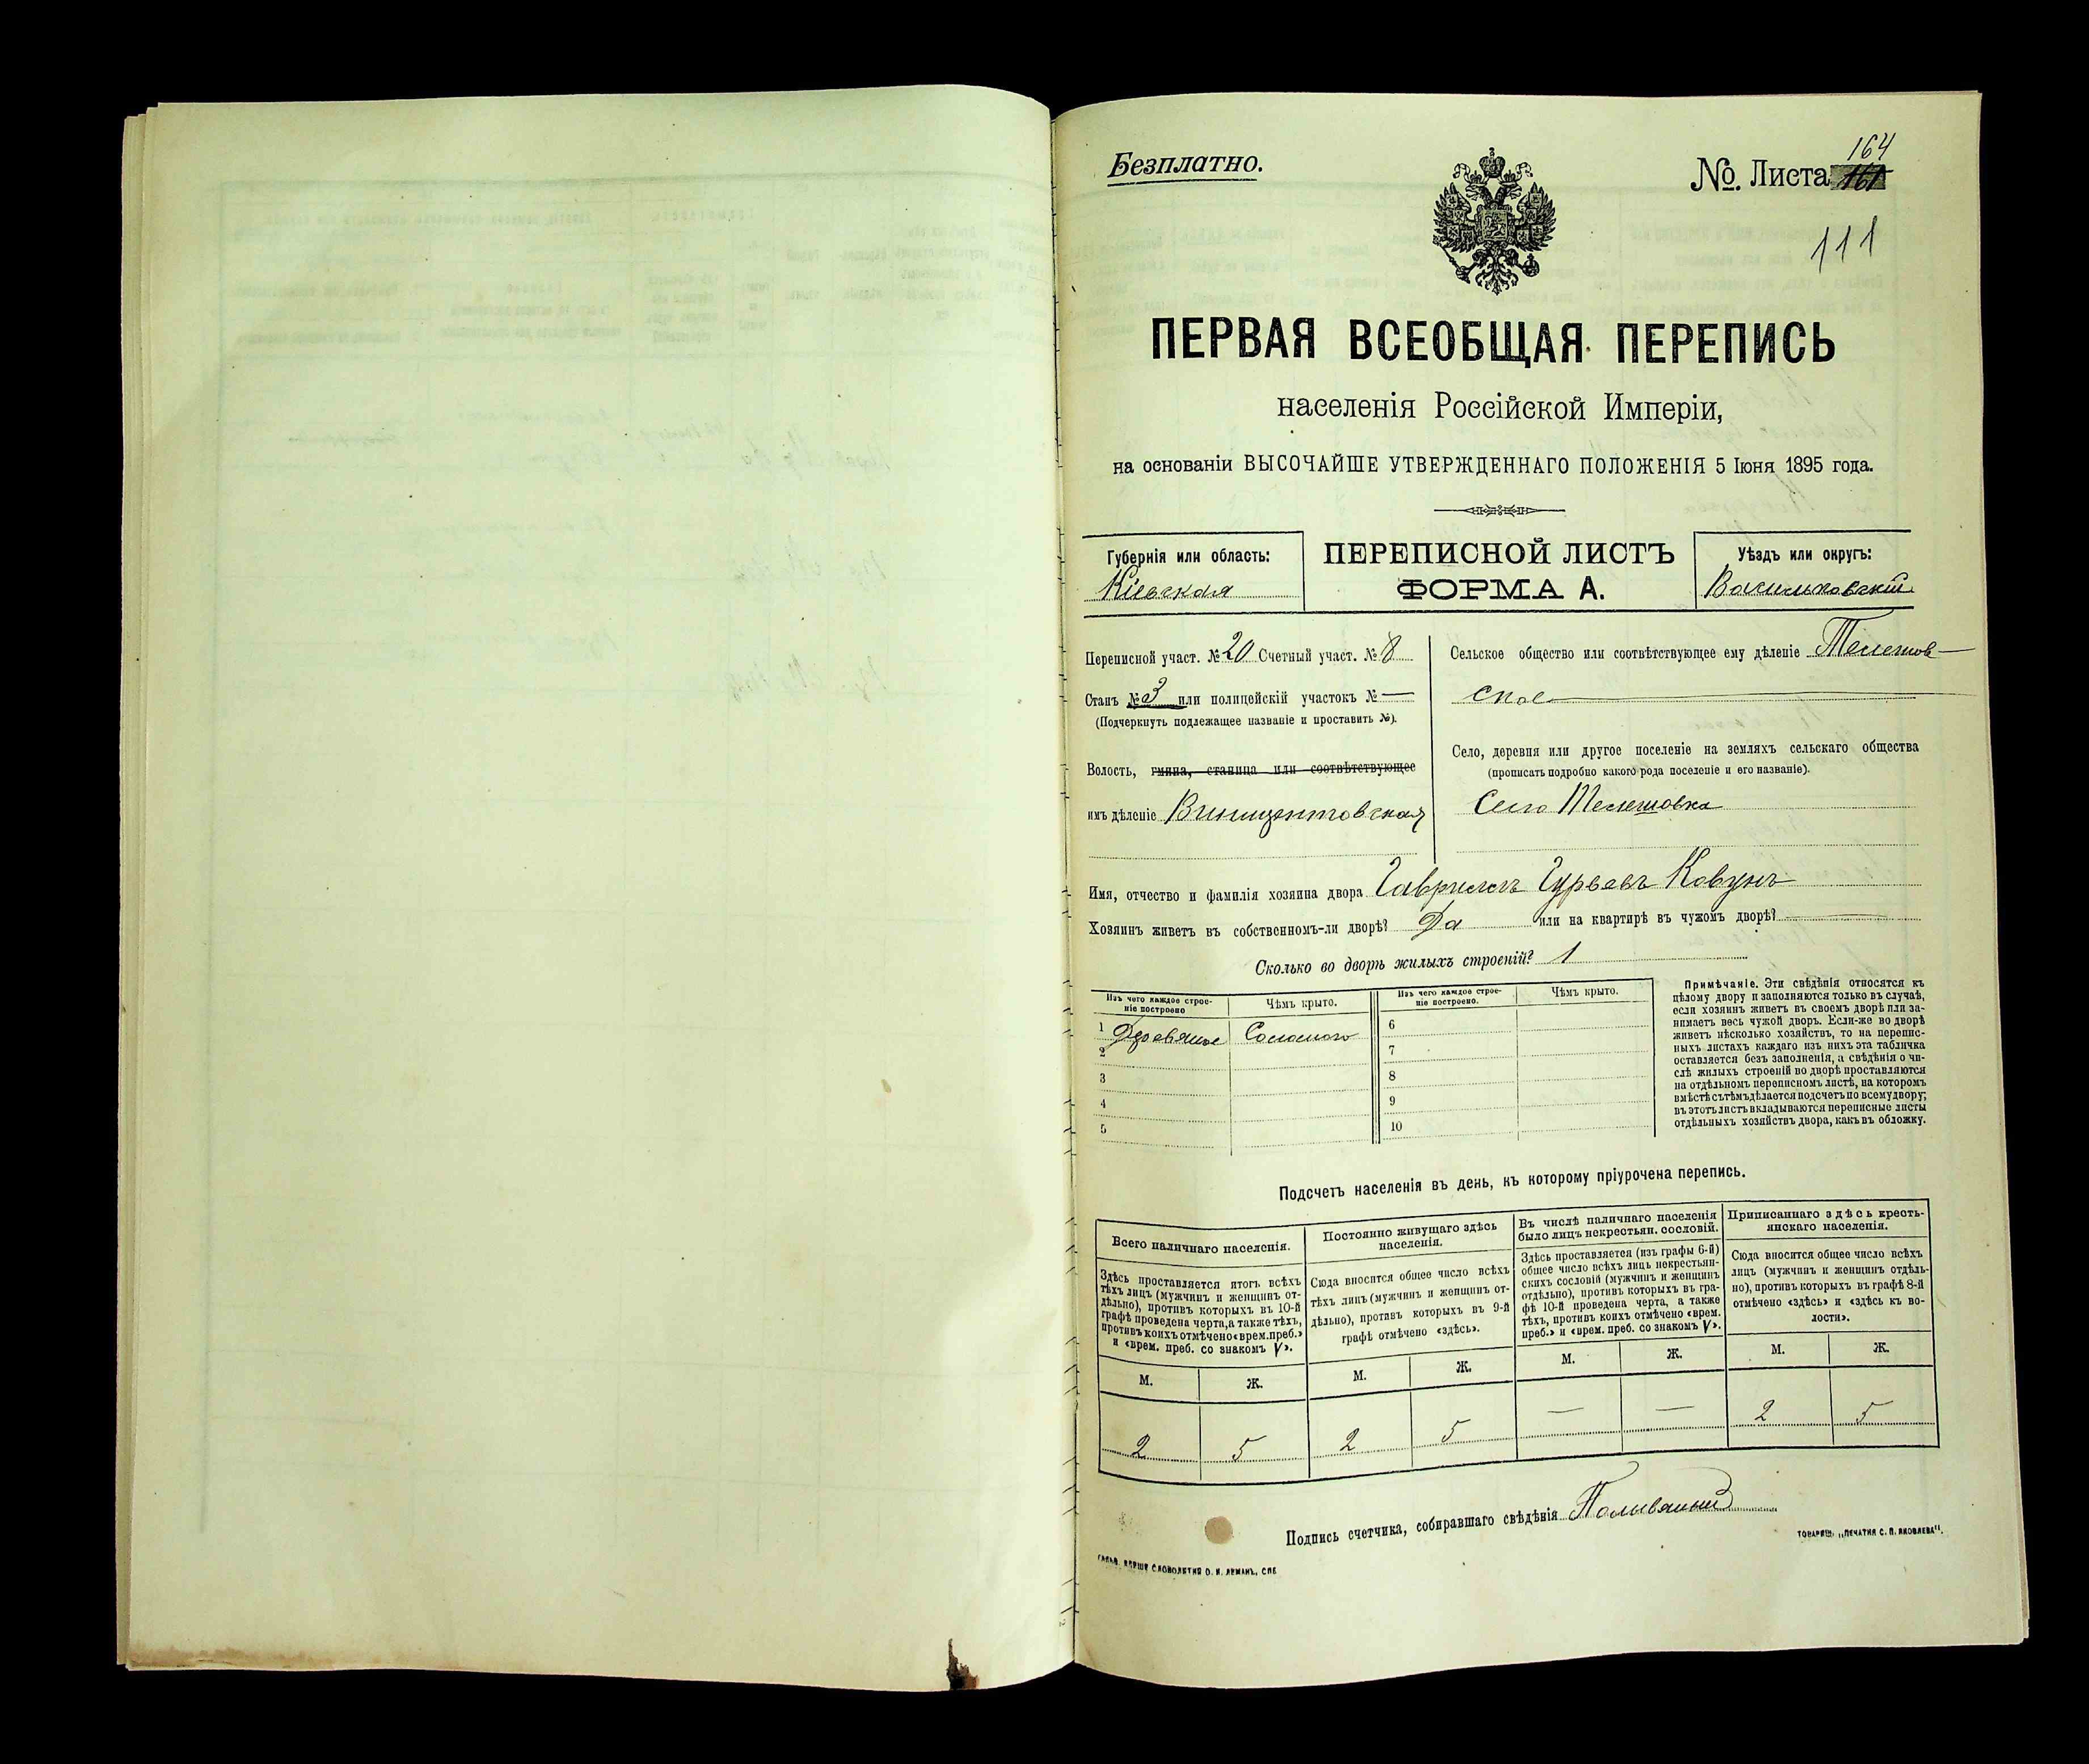 Безплатно.
№. Листа 164
111
ПЕРВАЯ ВСЕОБЩАЯ ПЕРЕПИСЬ
населенія Россійской Имперіи,
на основаніи ВЫСОЧАЙШЕ УТВЕРЖДЕННАГО ПОЛОЖЕНІЯ 5 Іюня 1895 года.
Губернія или область:
Кіевская
ПЕРЕПИСНОЙ ЛИСТЪ
ФОРМА А.
Уѣздъ или округъ:
Васильковскій
Переписной участ. № 20 Счетный участ. № 8
Станъ № 3 или полицейскій участокъ № —
(Подчеркнуть подлежащее названіе и проставить №).
Волость, гмина, станица или соотвѣтствующее
имъ дѣленіе Винцентовская
Сельское общество или соотвѣтствующее ему дѣленіе Телешов-
ское
Село, деревня или другое поселеніе на земляхъ сельскаго общества
(прописать подробно какого рода поселеніе и его названіе).
Село Телешовка
Имя, отчество и фамилія хозяина двора Гаврилъ Гурьевъ Ковунъ
Хозяинъ живетъ въ собственномъ-ли дворѣ? Да или на квартирѣ въ чужомъ дворѣ? —
Сколько во дворѣ жилыхъ строеній? 1
Изъ чего каждое строе-
ніе построено
Чѣмъ крыто.
Изъ чего каждое строе-
ніе построено.
Чѣмъ крыто.
1 Деревяное Соломою
2
3
4
5
6
7
8
9
10
Примѣчаніе. Эти свѣдѣнія относятся къ
цѣлому двору и заполняются только въ случаѣ,
если хозяинъ живетъ въ своемъ дворѣ или за-
нимаетъ весь чужой дворъ. Если-же во дворѣ
живетъ нѣсколько хозяйствъ, то на перепис-
ныхъ листахъ каждаго изъ нихъ эта табличка
оставляется безъ заполненія, а свѣдѣнія о чи-
слѣ жилыхъ строеній во дворѣ проставляются
на отдѣльномъ переписномъ листѣ, на которомъ
вмѣстѣ съ тѣмъ дѣлается подсчетъ по всему двору;
въ этотъ листъ вкладываются переписные листы
отдѣльныхъ хозяйствъ двора, какъ въ обложку.
Подсчетъ населенія въ день, къ которому пріурочена перепись.
Всего наличнаго населенія.
Здѣсь проставляется итогъ всѣхъ
тѣхъ лицъ (мужчинъ и женщинъ от-
дѣльно), противъ которыхъ въ 10-й
графѣ проведена черта, а также тѣхъ,
противъ коихъ отмѣчено «врем. преб.»
и «врем. преб. со знакомъ V».
М. Ж.
2 5
Постоянно живущаго здѣсь
населенія.
Сюда вносится общее число всѣхъ
тѣхъ лицъ (мужчинъ и женщинъ от-
дѣльно), противъ которыхъ въ 9-й
графѣ отмѣчено «здѣсь».
М. Ж.
2 5
Въ числѣ наличнаго населенія
было лицъ некрестьян. сословій.
Здѣсь проставляется (изъ графы 6-й)
общее число всѣхъ лицъ некрестьян-
скихъ сословій (мужчинъ и женщинъ
отдѣльно), противъ которыхъ въ гра-
фѣ 10-й проведена черта, а также
тѣхъ, противъ коихъ отмѣчено «врем.
преб.» и «врем. преб. со знакомъ V».
М. Ж.
— —
Приписаннаго здѣсь кресть-
янскаго населенія.
Сюда вносится общее число всѣхъ
лицъ (мужчинъ и женщинъ отдѣль-
но), противъ которыхъ въ графѣ 8-й
отмѣчено «здѣсь» и «здѣсь къ во-
лости».
М. Ж.
2 5
Подпись счетчика, собиравшаго свѣдѣнія Поливяный
СЛОВОЛИТНЯ О. И. ЛЕМАНЪ, СПБ
ТОВАРИЩ. „ПЕЧАТНЯ С. П. ЯКОВЛЕВА".